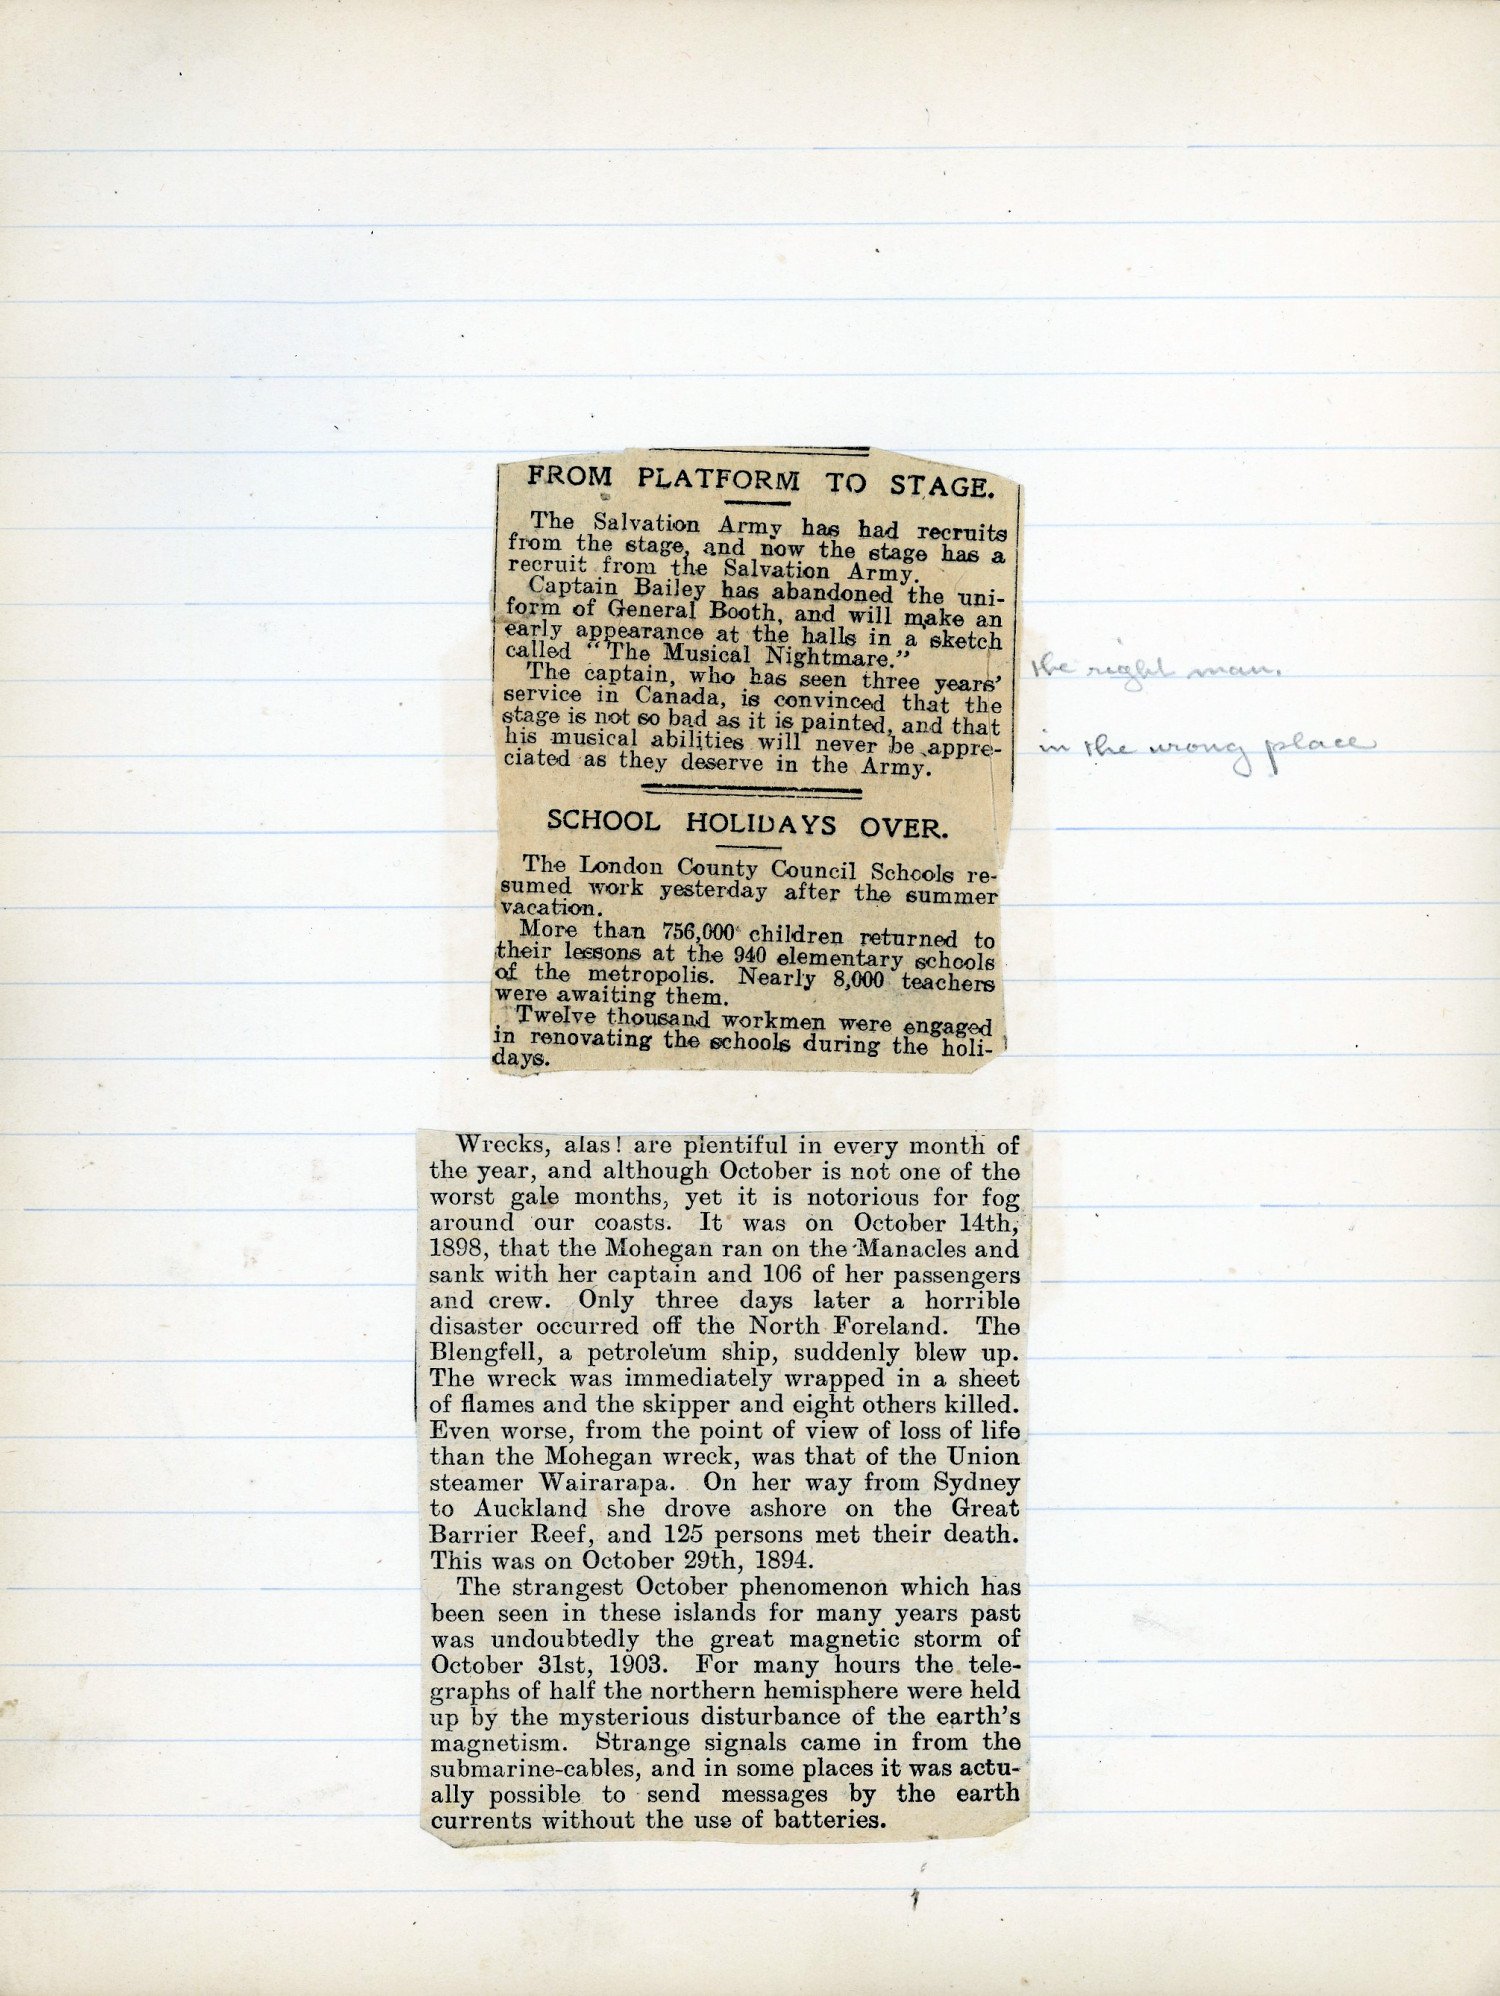 FROM PLATFORM TO STAGE.
The Salvation Army has had recruits
from the stage, and now the stage has a
recruit from the Salvation Army.
Captain Bailey has abandoned the uni-
form of General Booth, and will make an
early appearance at the halls in a sketch
called "The Musical Nightmare."
The captain, who has seen three years'
service in Canada, is convinced that the
stage is not so bad as it is painted, and that
his musical abilities will never be appre-
ciated as they deserve in the Army.
the right man.
in the wrong place
SCHOOL HOLIDAYS OVER.
The London County Council Schools re-
sumed work yesterday after the summer
vacation.
More than 756,000 children returned to
their lessons at the 940 elementary schools
of the metropolis. Nearly 8,000 teachers
were awaiting them.
Twelve thousand workmen were engaged
in renovating the schools during the holi-
days.
Wrecks, alas! are plentiful in every month of
the year, and although October is not one of the
worst gale months, yet it is notorious for fog
around our coasts. It was on October 14th,
1898, that the Mohegan ran on the Manacles and
sank with her captain and 106 of her passengers
and crew. Only three days later a horrible
disaster occurred off the North Foreland. The
Blengfell, a petroleum ship, suddenly blew up.
The wreck was immediately wrapped in a sheet
of flames and the skipper and eight others killed.
Even worse, from the point of view of loss of life
than the Mohegan wreck, was that of the Union
steamer Wairarapa. On her way from Sydney
to Auckland she drove ashore on the Great
Barrier Reef, and 125 persons met their death.
This was on October 29th, 1894.
The strangest October phenomenon which has
been seen in these islands for many years past
was undoubtedly the great magnetic storm of
October 31st, 1903. For many hours the tele-
graphs of half the northern hemisphere were held
up by the mysterious disturbance of the earth's
magnetism. Strange signals came in from the
submarine-cables, and in some places it was actu-
ally possible to send messages by the earth
currents without the use of batteries.